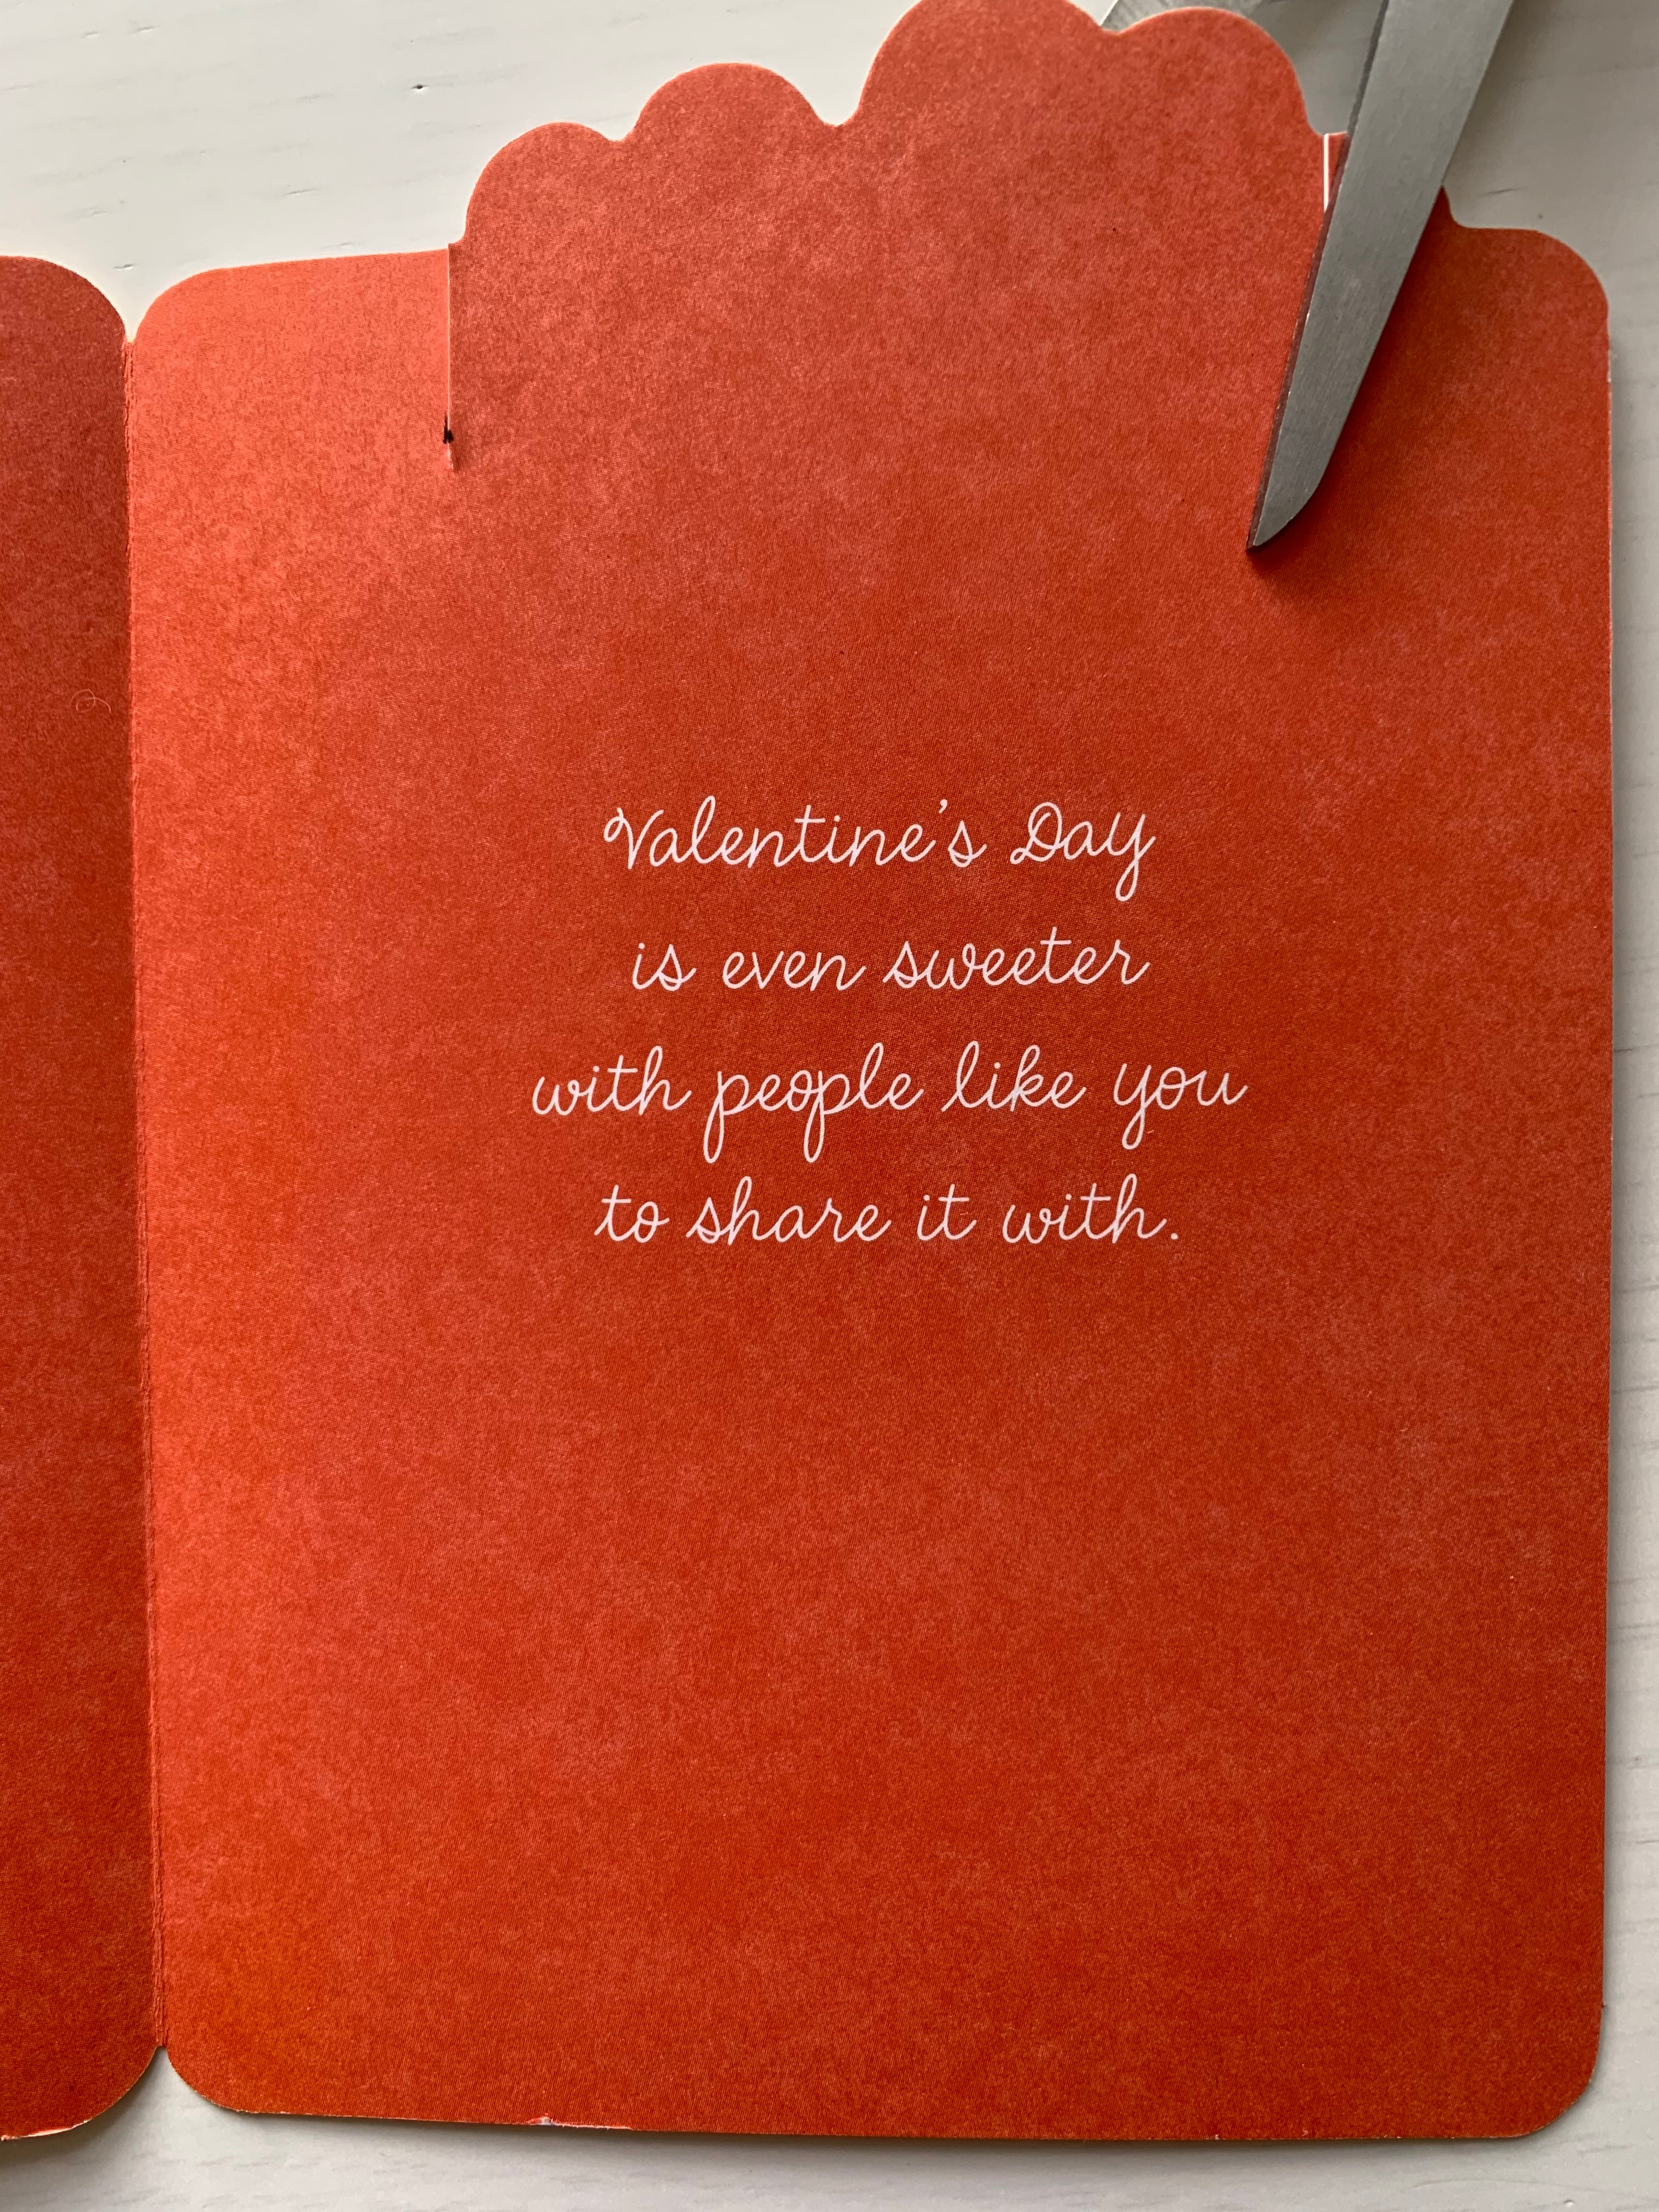 Valentine's Day
is even sweeter
with people like you
to share it with.